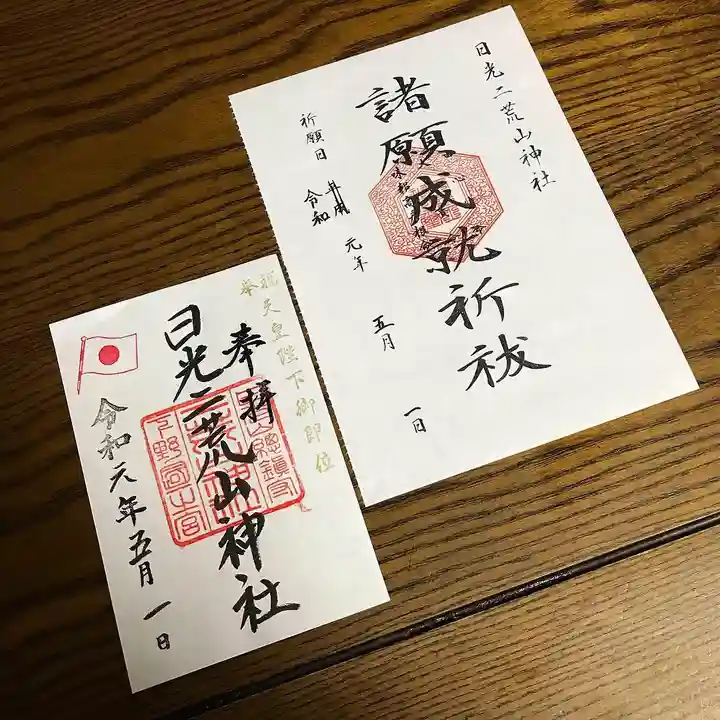 日光二荒山神社
諸願成就祈祓
祈願日
令和 元年 五月 一日
奉祝 天皇陛下御即位
奉拝
日光二荒山神社
令和元年五月一日